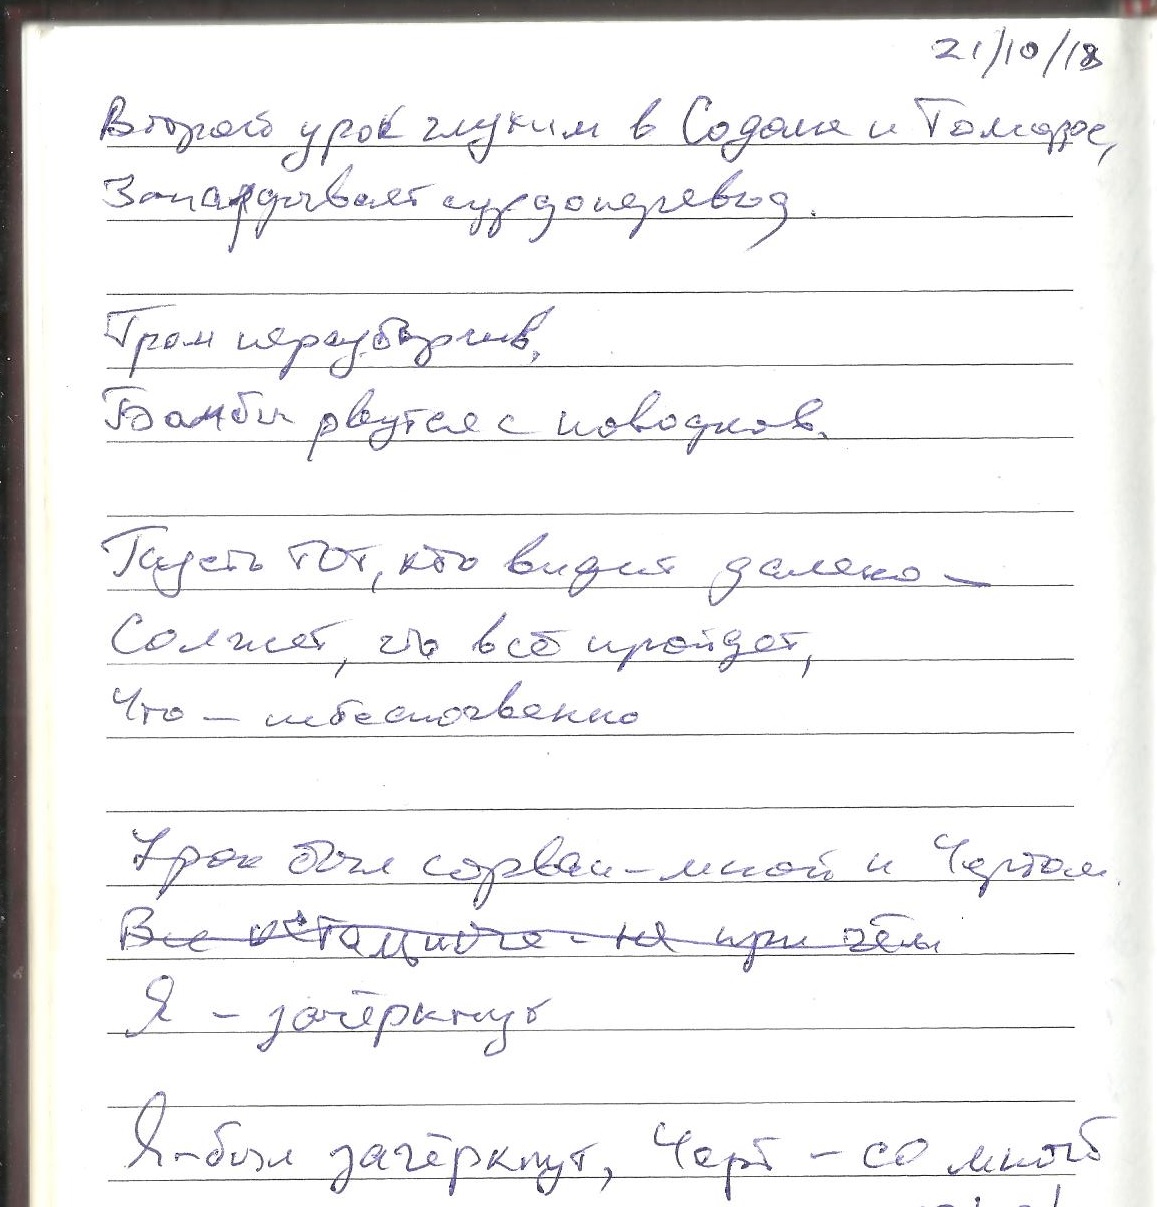 21/10/18
Второй урок глухим в Содоме и Гоморре,
Запаздывает сурдоперевод.
Гром неразборчив,
Бамби рвутся с поводков.
Пусть тот, кто видит далеко –
Солжет, что всё пройдет,
Что – небеспочвенно
Урок был сорван – мной и Чертом.
Все остальные – не при чём
Я – зачёркнут
Я – был зачёркнут, Черт – со мной